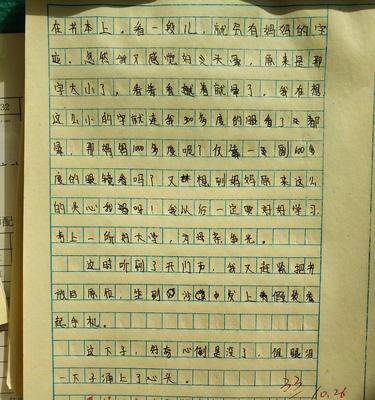 在书本上。看一段儿，就会有妈妈的字
迹。忽然我又感觉好头晕，原来是那
字太小了，看着看着就晕了。我在想，
这么小的字就连我30多度的眼看了都
晕，那妈妈1000多度呢？仅靠一副600多
度的眼镜看吗？又想到妈妈原来这么
的关心我呀！我从以后一定要好好学习，
考上一所好大学，为母亲争光。
这时听到了开门声，我又赶紧把书
放回原位，坐到沙发上假装看
起手机。
这下子，好奇心倒是没了，但眼泪
一下子涌上了心头。
33
10.26
32